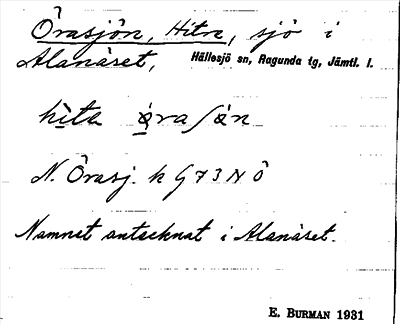 Örasjön, Hitre, sjö i
Alanäset, Hällesjö sn, Ragunda tg, Jämtl. l.
N. Örasj. k G73NÖ
Namnet antecknat i Alanäset.
E. BURMAN 1931